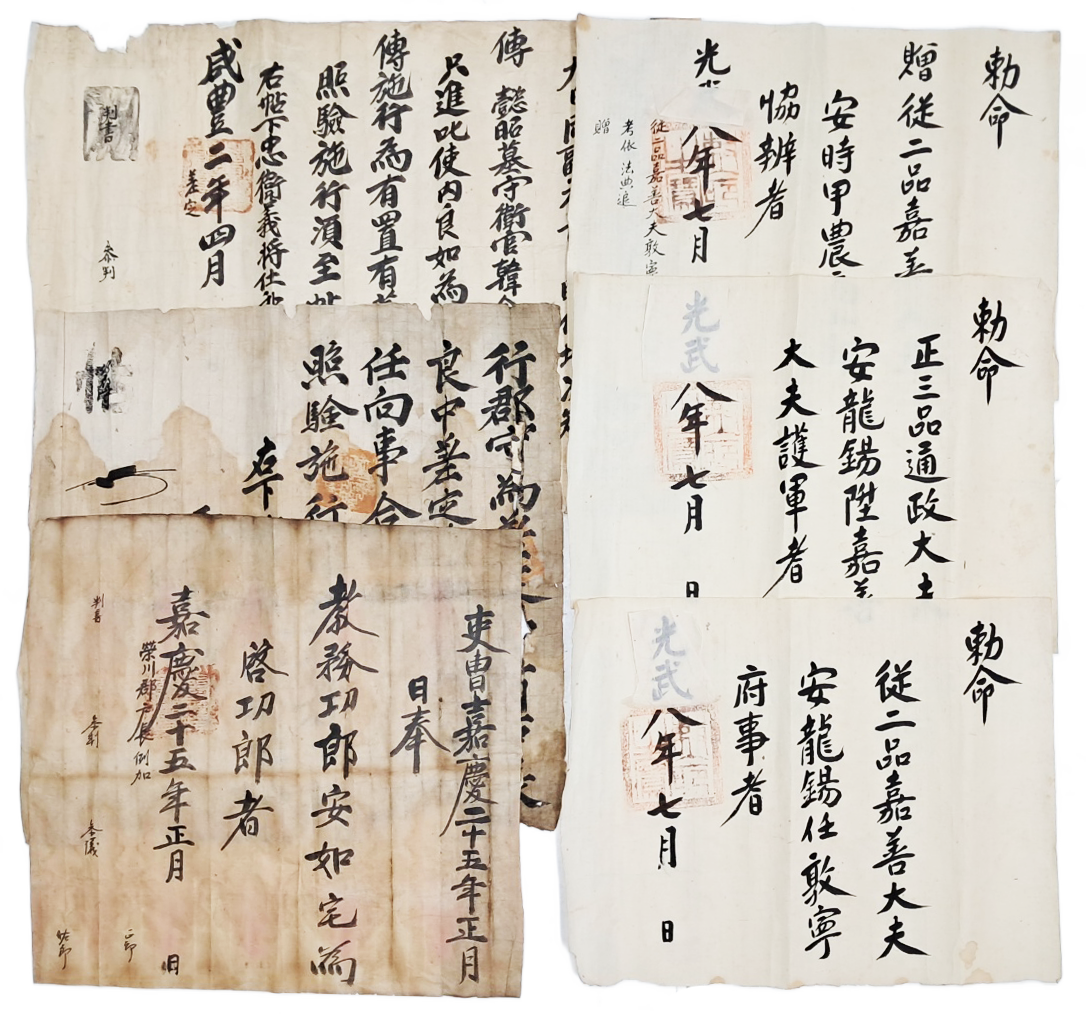 勅命
贈從二品嘉善
安時甲農
協辦者
光武
八年七月
從二品嘉善大夫敦寧
考依 法典追
贈
勅命
正三品通政大夫
安龍錫陞嘉善
大夫護軍者
光武
八年七月
日
勅命
從二品嘉善大夫
安龍錫任敦寧
府事者
光武
八年七月
日
傳 懿昭墓守衛官韓
只進叱使內良如為
傳施行為有置有
照驗施行須至帖
右帖下忠衛義將仕
咸豊二年四月
差定
判書
參判
行郡守為
良中差定
任向事合
照驗施行
右下
吏曹嘉慶二十五年正月
日奉
教務功郎安如宅為
啓功郎者
嘉慶二十五年正月
日
榮川郡戶長例加
判書
參判
參議
正郎
佐郎